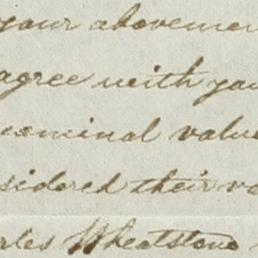 your abovemen
agree with you
nominal value
sidered their va
rles Wheatstone